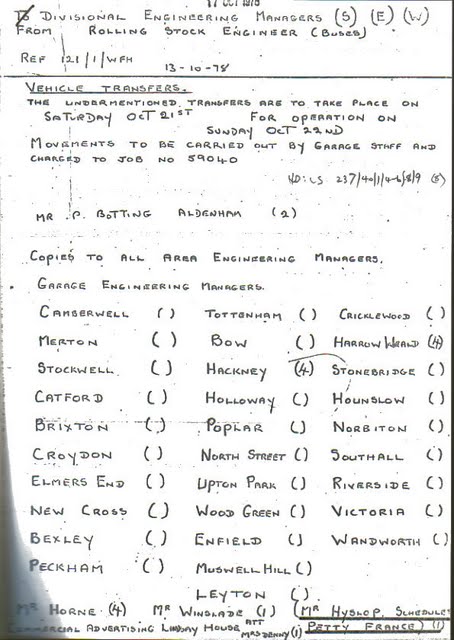 17 OCT 1978
TO DIVISIONAL ENGINEERING MANAGERS (S) (E) (W)
FROM ROLLING STOCK ENGINEER (BUSES)
REF 121/1/WFH
13-10-78
VEHICLE TRANSFERS.
THE UNDERMENTIONED TRANSFERS ARE TO TAKE PLACE ON
SATURDAY OCT 21ST FOR OPERATION ON
SUNDAY OCT 22ND
MOVEMENTS TO BE CARRIED OUT BY GARAGE STAFF AND
CHARGED TO JOB NO 59040
MR P. BOTTING ALDENHAM (2)
COPIES TO ALL AREA ENGINEERING MANAGERS.
GARAGE ENGINEERING MANAGERS.
CAMBERWELL ( ) TOTTENHAM ( ) CRICKLEWOOD ( )
MERTON ( ) BOW ( ) HARROW WEALD (4)
STOCKWELL ( ) HACKNEY (4) STONEBRIDGE ( )
CATFORD ( ) HOLLOWAY ( ) HOUNSLOW ( )
BRIXTON ( ) POPLAR ( ) NORBITON ( )
CROYDON ( ) NORTH STREET ( ) SOUTHALL ( )
ELMERS END ( ) UPTON PARK ( ) RIVERSIDE ( )
NEW CROSS ( ) WOOD GREEN ( ) VICTORIA ( )
BEXLEY ( ) ENFIELD ( ) WANDWORTH ( )
PECKHAM ( ) MUSWELL HILL ( )
LEYTON ( )
MR HORNE (4) MR WINSLADE (1) (MR HYSLOP, SCHEDULE
COMMERCIAL ADVERTISING LINDAY HOUSE ATT MRS DENNY (1) PETTY FRANCE) (1)